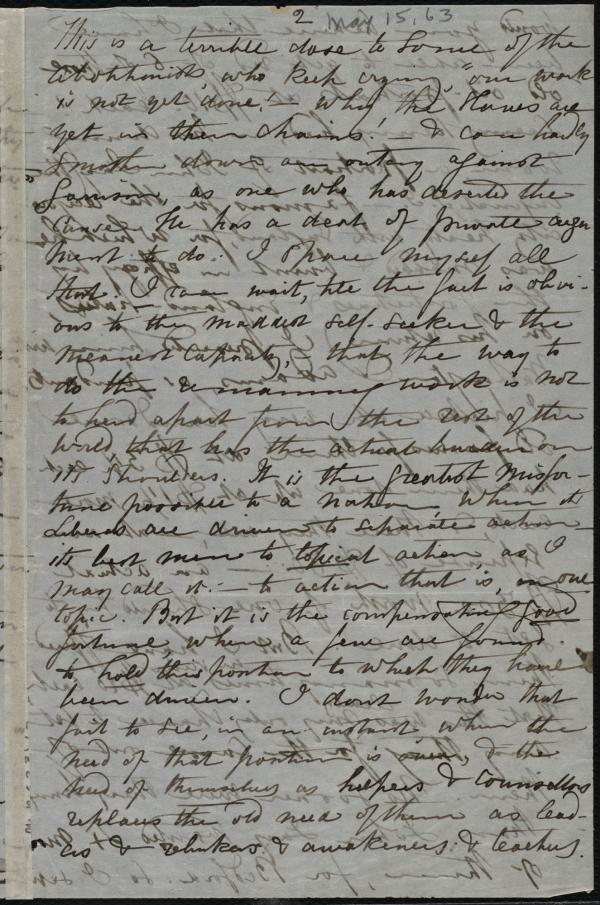 2 May 15, 63
This is a terrible dose to some of the
abolitionists, who keep crying "our work
is not yet done! - Why the Slaves are
yet in their chains! & can hardly
smother down an outcry against
Garrison as one who has deserted the
Cause. He has a deal of private argu
ment to do. I spare myself all
that. I can wait, till the fact is obvi-
ous to the maddest self-seeker & the
meanest capacity, - that the way to
do the remaining work is not
to herd apart from the rest of the
world, that has the actual burden on
its shoulders. It is the greatest misfor-
tune possible to a nation, when its
Liberals are driven to separate action
its best men to topical action as I
may call it: - to action that is, on one
topic. But it is the compensating good
fortune when a few are found
to hold this position to which they have
been driven. I don't wonder that
fail to see, in an instant when the
need of that position is over, & the
need of themselves as helpers & counsellors
replaces the old need of them as lead-
ers & rebukers & awakeners & teachers.